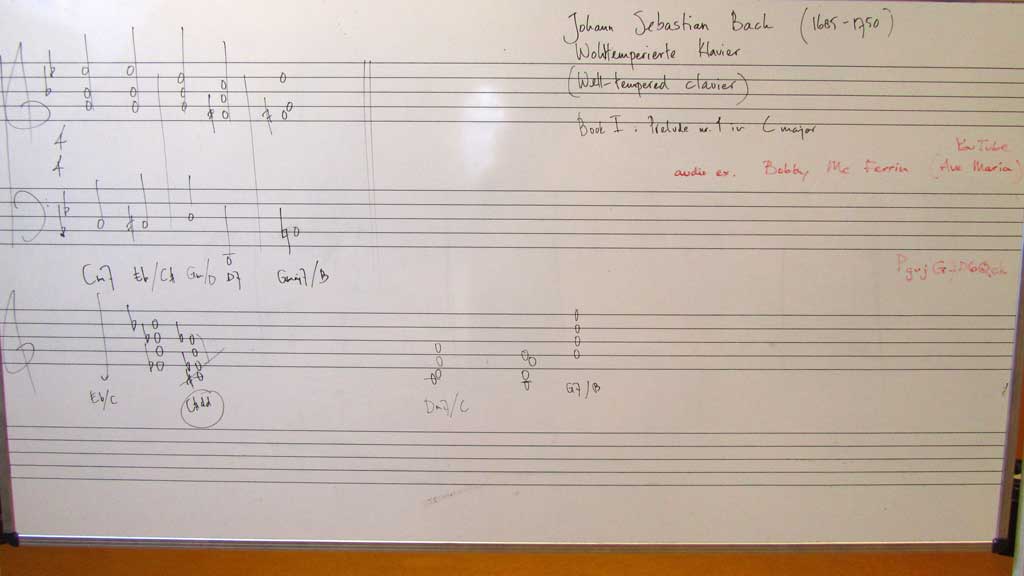 Johann Sebastian Bach (1685-1750)
Wohltemperierte Klavier
(Well-tempered clavier)
Book I: Prelude nr. 1 in C major
YouTube
audio ex. Bobby Mc Ferrin (Ave Maria)
4
4
Cm7 Eb/C# Gm/D D7 Gmaj7/B
Eb/C
Dm7/C
G7/B